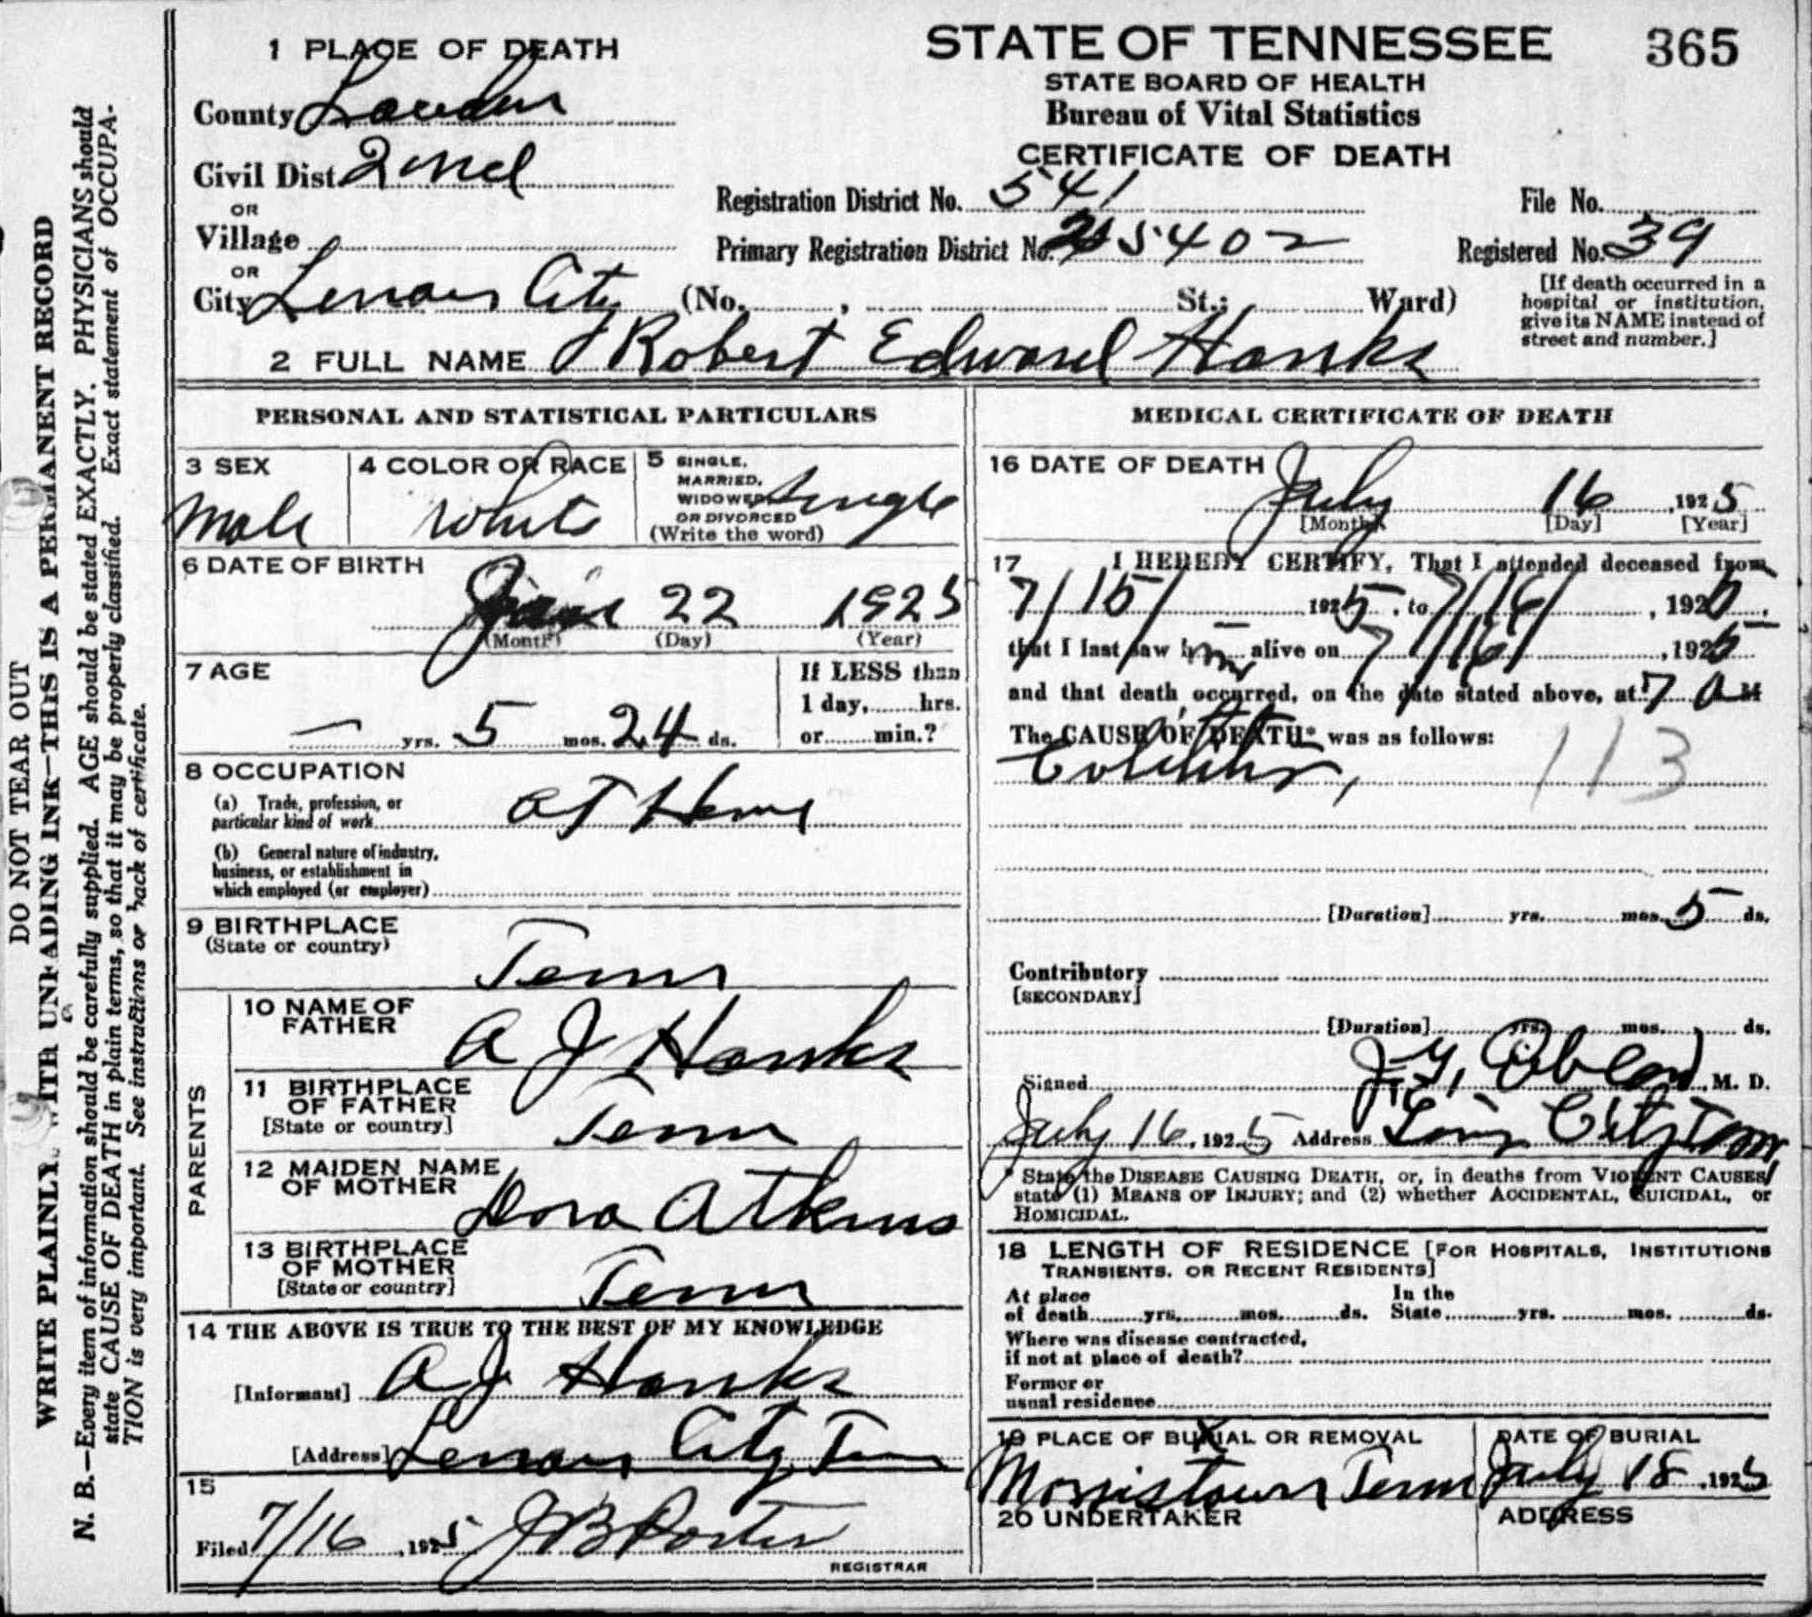 365
STATE OF TENNESSEE
STATE BOARD OF HEALTH
Bureau of Vital Statistics
CERTIFICATE OF DEATH
1 PLACE OF DEATH
County Loudon
Civil Dist. 2nd
OR
Village
OR
City Lenoir City (No. , St.; Ward)
Registration District No. 541
File No.
Primary Registration District No. 25402
Registered No. 39
[If death occurred in a
hospital or institution,
give its NAME instead of
street and number.]
2 FULL NAME Robert Edward Hanks
PERSONAL AND STATISTICAL PARTICULARS
3 SEX
Male
4 COLOR OR RACE
White
5 SINGLE,
MARRIED,
WIDOWED
OR DIVORCED
(Write the word)
Single
6 DATE OF BIRTH
22 1925
(Month) (Day) (Year)
7 AGE
— yrs. 5 mos. 24 ds.
If LESS than
1 day, hrs.
or min.?
8 OCCUPATION
(a) Trade, profession, or
particular kind of work At Home
(b) General nature of industry,
business, or establishment in
which employed (or employer)
9 BIRTHPLACE
(State or country)
Tenn
PARENTS
10 NAME OF
FATHER
A J Hanks
11 BIRTHPLACE
OF FATHER
[State or country]
Tenn
12 MAIDEN NAME
OF MOTHER
Dora Atkins
13 BIRTHPLACE
OF MOTHER
[State or country]
Tenn
14 THE ABOVE IS TRUE TO THE BEST OF MY KNOWLEDGE
[Informant] A J Hanks
[Address] Lenoir City Tenn
15
Filed 7/16, 1925 J B Porter
REGISTRAR
MEDICAL CERTIFICATE OF DEATH
16 DATE OF DEATH
July 16 ,1925
[Month] [Day] [Year]
17 I HEREBY CERTIFY, That I attended deceased from
7/15/ 1925, to 7/16/, 1925,
that I last saw him alive on 7/16/, 1925
and that death occurred, on the date stated above, at 7 A M
The CAUSE OF DEATH* was as follows:
Colitis, 113
[Duration] yrs. mos. 5 ds.
Contributory
[SECONDARY]
[Duration] yrs. mos. ds.
Signed J. G. M. D.
July 16, 1925 Address City Tenn
* State the DISEASE CAUSING DEATH, or, in deaths from VIOLENT CAUSES
state (1) MEANS OF INJURY; and (2) whether ACCIDENTAL, SUICIDAL, or
HOMICIDAL.
18 LENGTH OF RESIDENCE [FOR HOSPITALS, INSTITUTIONS
TRANSIENTS. OR RECENT RESIDENTS]
At place
of death yrs. mos. ds.
In the
State yrs. mos. ds.
Where was disease contracted,
if not at place of death?
Former or
usual residence
19 PLACE OF BURIAL OR REMOVAL
Morristown Tenn
DATE OF BURIAL
July 18 ,1925
20 UNDERTAKER
ADDRESS
DO NOT TEAR OUT
WRITE PLAINLY WITH UNFADING INK—THIS IS A PERMANENT RECORD
N. B.—Every item of information should be carefully supplied. AGE should be stated EXACTLY. PHYSICIANS should
state CAUSE OF DEATH in plain terms, so that it may be properly classified. Exact statement of OCCUPA-
TION is very important. See instructions or back of certificate.